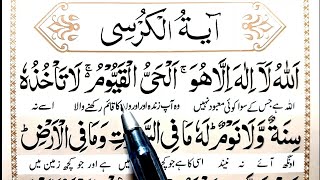 آیۃُ الکُرسی
اَللّٰهُ لَاۤ اِلٰهَ اِلَّا هُوَ ۚ اَلْحَیُّ الْقَیُّوْمُ ۬ۚ لَا تَاْخُذُهٗ
اللہ ہے جس کے سوا کوئی معبود نہیں وہ آپ زندہ اور اوروں کا قائم رکھنے والا اسے نہ
سِنَةٌ وَّلَا نَوْمٌ ؕ لَهٗ مَا فِی السَّمٰوٰتِ وَمَا فِی الْاَرْضِ ؕ
اونگھ آئے نہ نیند اسی کا ہے جو کچھ میں ہے اور جو کچھ زمین میں